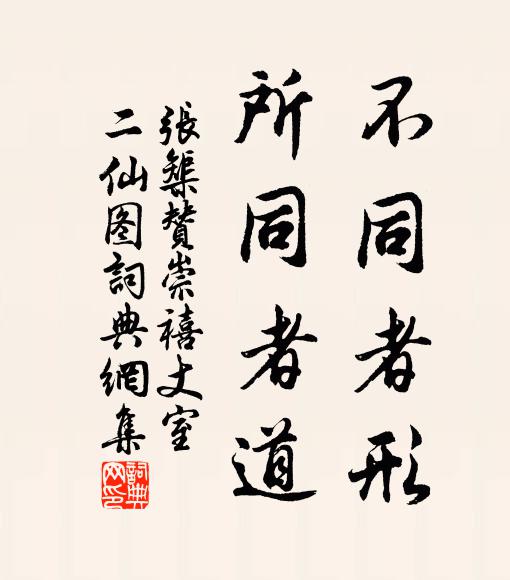 不同者形
所同者道
張榘贊崇禧丈室
二仙图詞典網集
詞典
网印